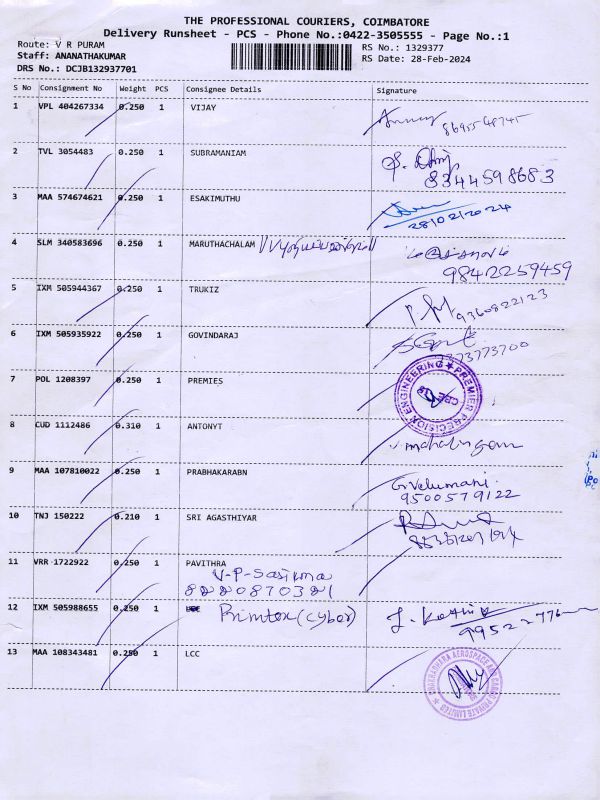 THE PROFESSIONAL COURIERS, COIMBATORE
Delivery Runsheet - PCS - Phone No.:0422-3505555 - Page No.:1
Route: V R PURAM
Staff: ANANATHAKUMAR
DRS No.: DCJB132937701
RS No.: 1329377
RS Date: 28-Feb-2024
S No Consignment No Weight PCS Consignee Details Signature
1 VPL 404267334 0.250 1 VIJAY
8695548745
2 TVL 3054483 0.250 1 SUBRAMANIAM
8344598683
3 MAA 574674621 0.250 1 ESAKIMUTHU
28/02/2024
4 SLM 340583696 0.250 1 MARUTHACHALAM
9842259459
5 IXM 505944367 0.250 1 TRUKIZ
9360822123
6 IXM 505935922 0.250 1 GOVINDARAJ
7373773700
7 POL 1208397 0.250 1 PREMIES
PREMIER PRECISION ENGINEERING
8 CUD 1112486 0.310 1 ANTONYT
mahalingam
9 MAA 107810022 0.250 1 PRABHAKARABN
G. Velumani
9500579122
10 TNJ 150222 0.210 1 SRI AGASTHIYAR
11 VRR 1722922 0.250 1 PAVITHRA
V-P-Sasikma
8220870321
12 IXM 505988655 0.250 1 Primtex (cyber)
13 MAA 108343481 0.250 1 LCC
PRIVATE LIMITED